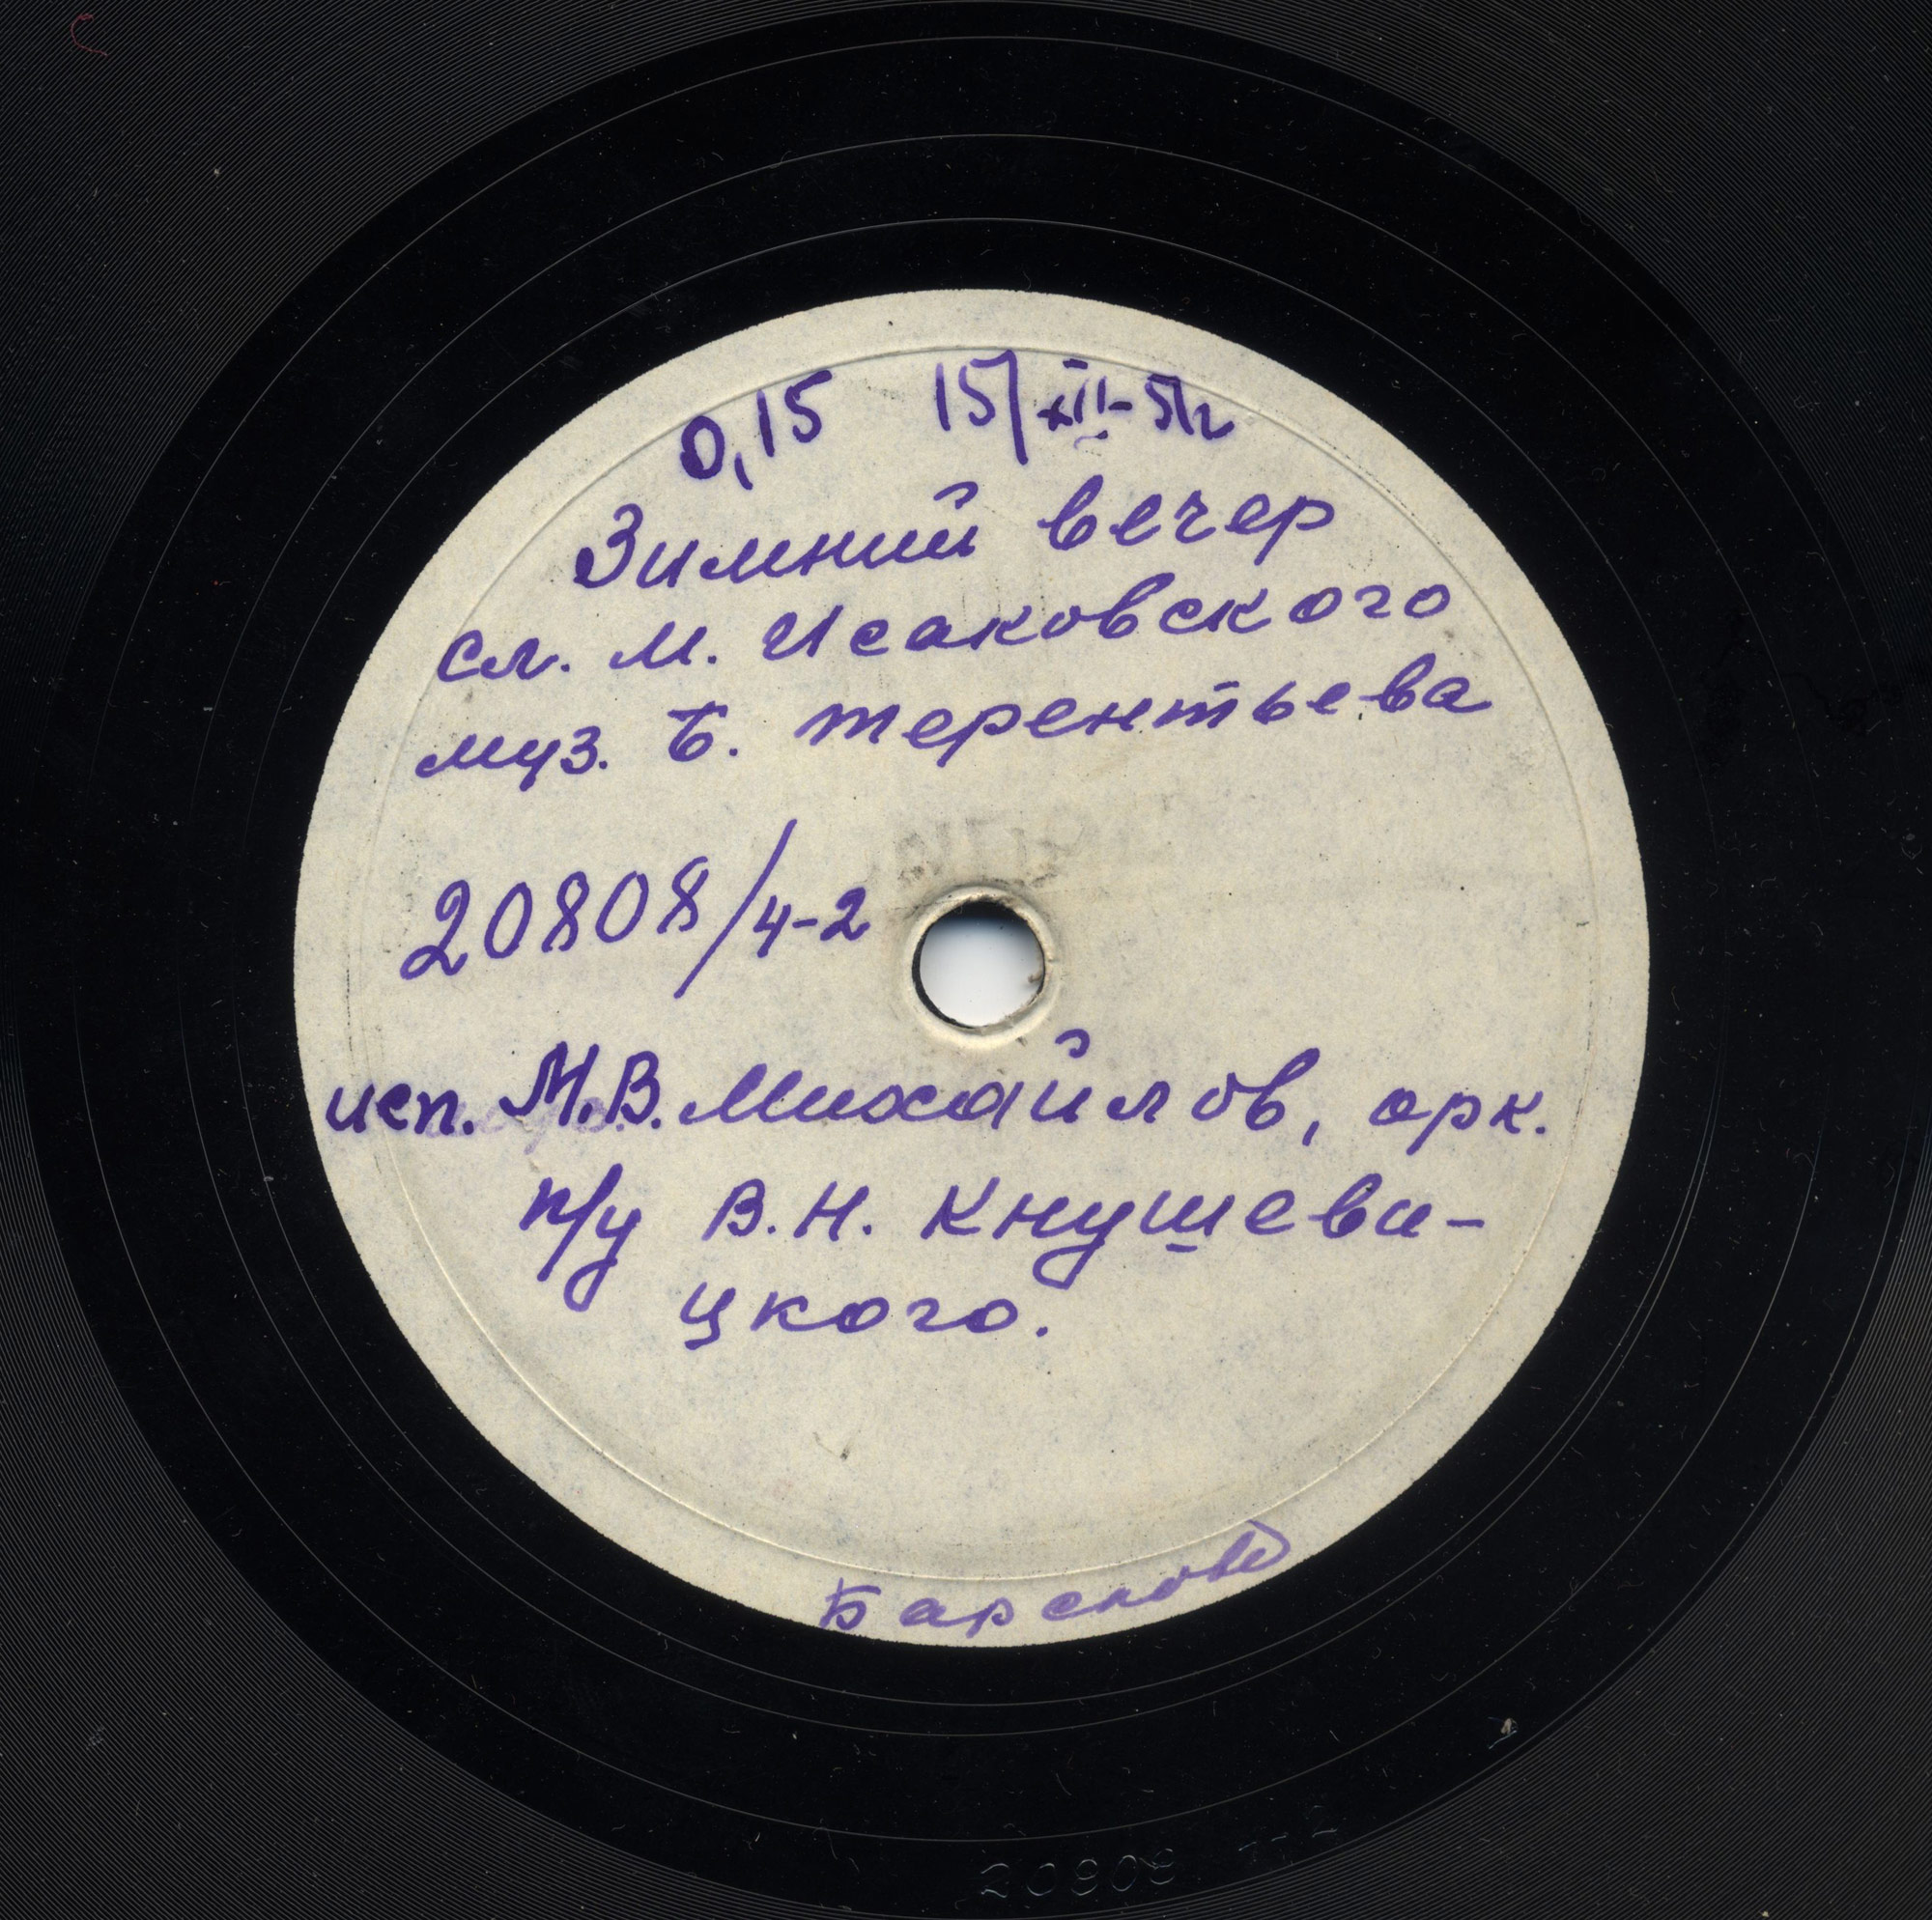 0,15 15/XII-51г
Зимний вечер
сл. М. Исаковского
муз. Б. Терентьева
20808/4-2
исп. М.В. Михайлов, орк.
п/у В.Н. Кнушеви-
цкого.
Барсков
20808